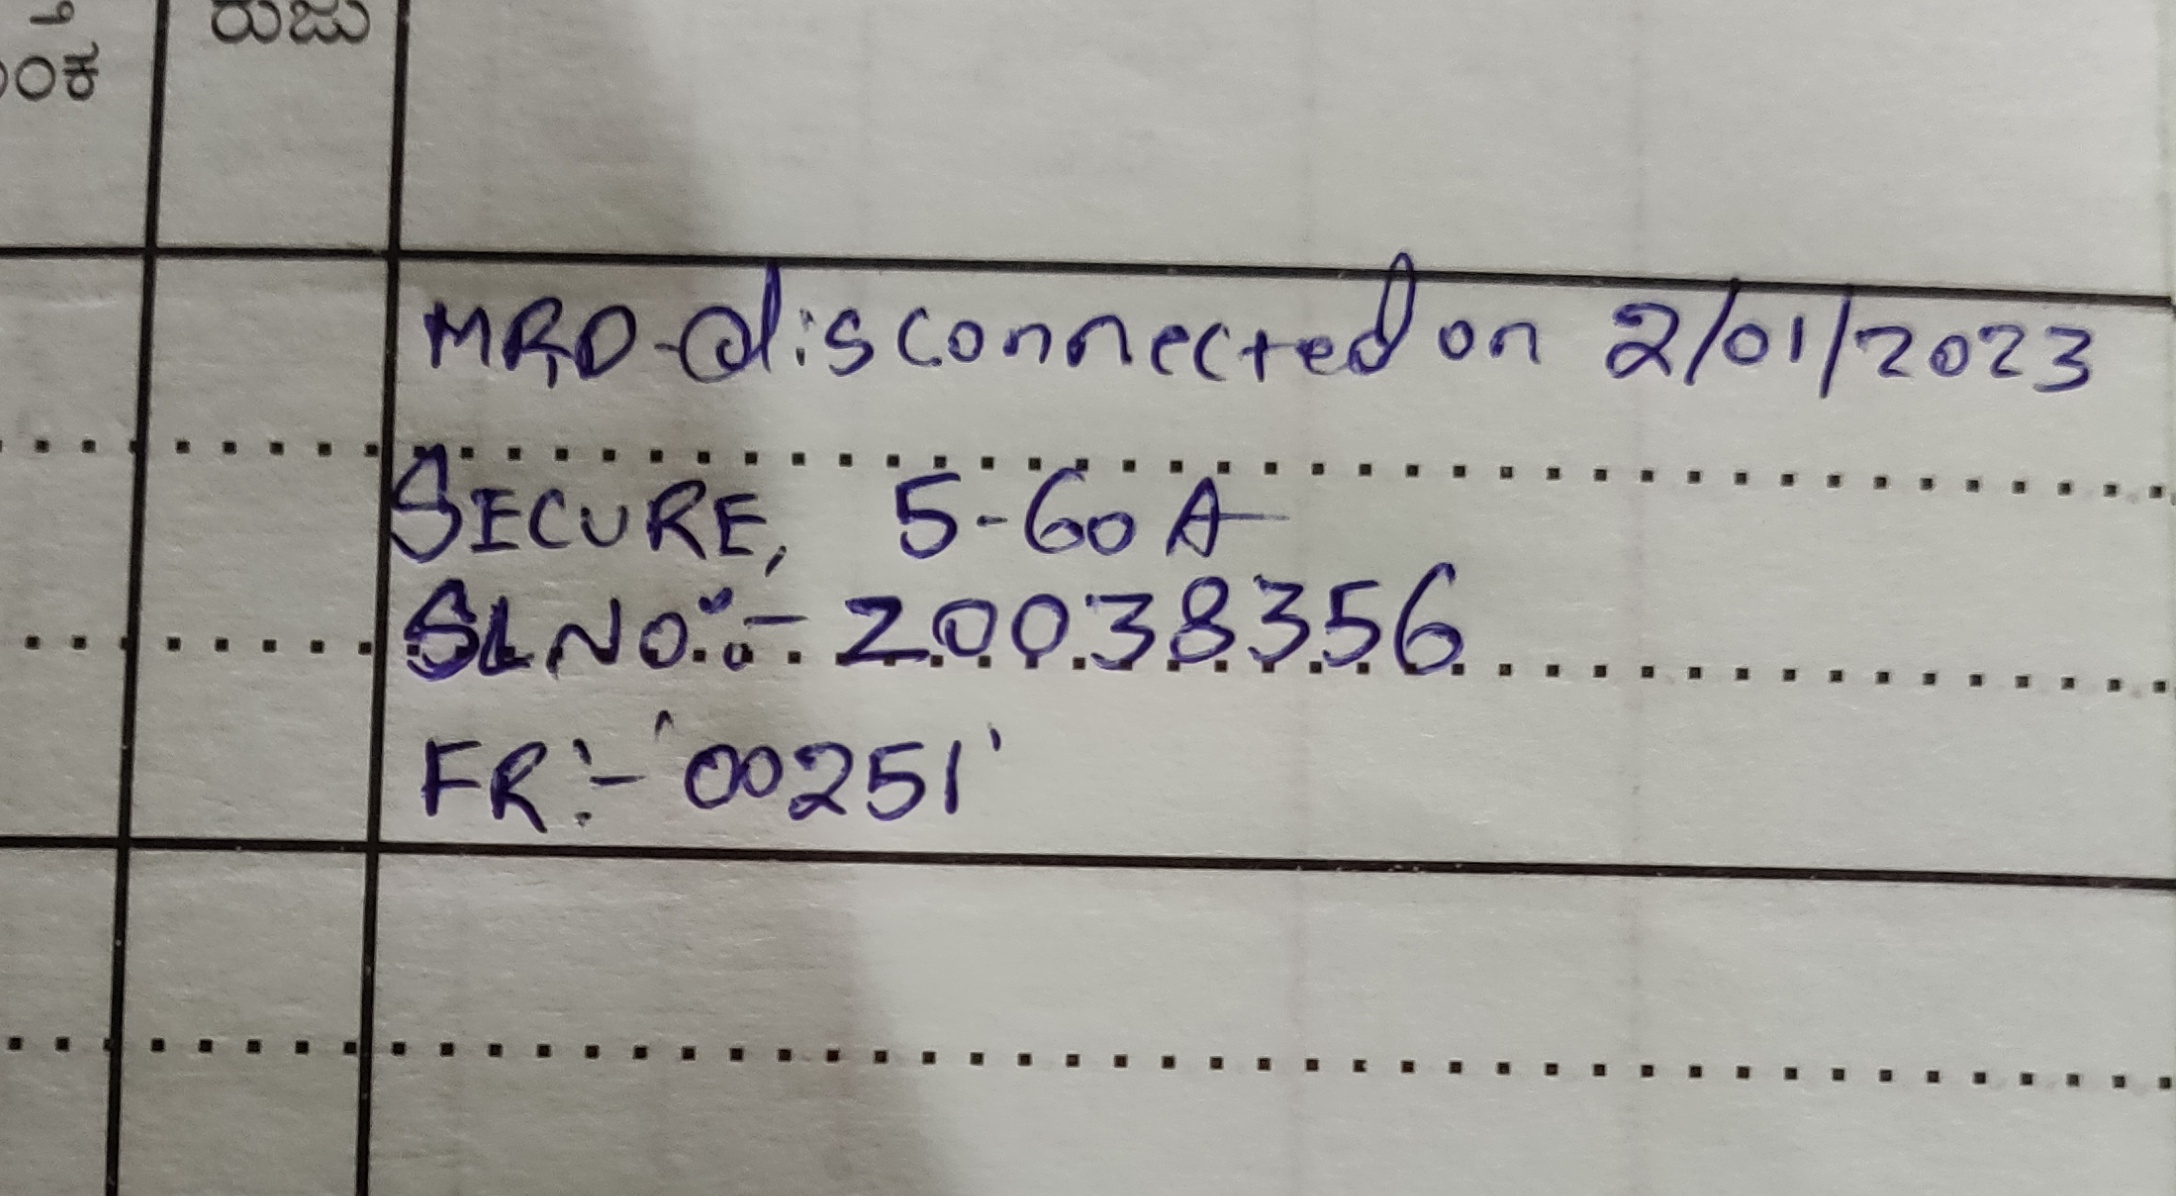 ರುಜು
MRD-disconnected on 2/01/2023
SECURE, 5-60A
SLNO:- 20038356
FR:- '00251'